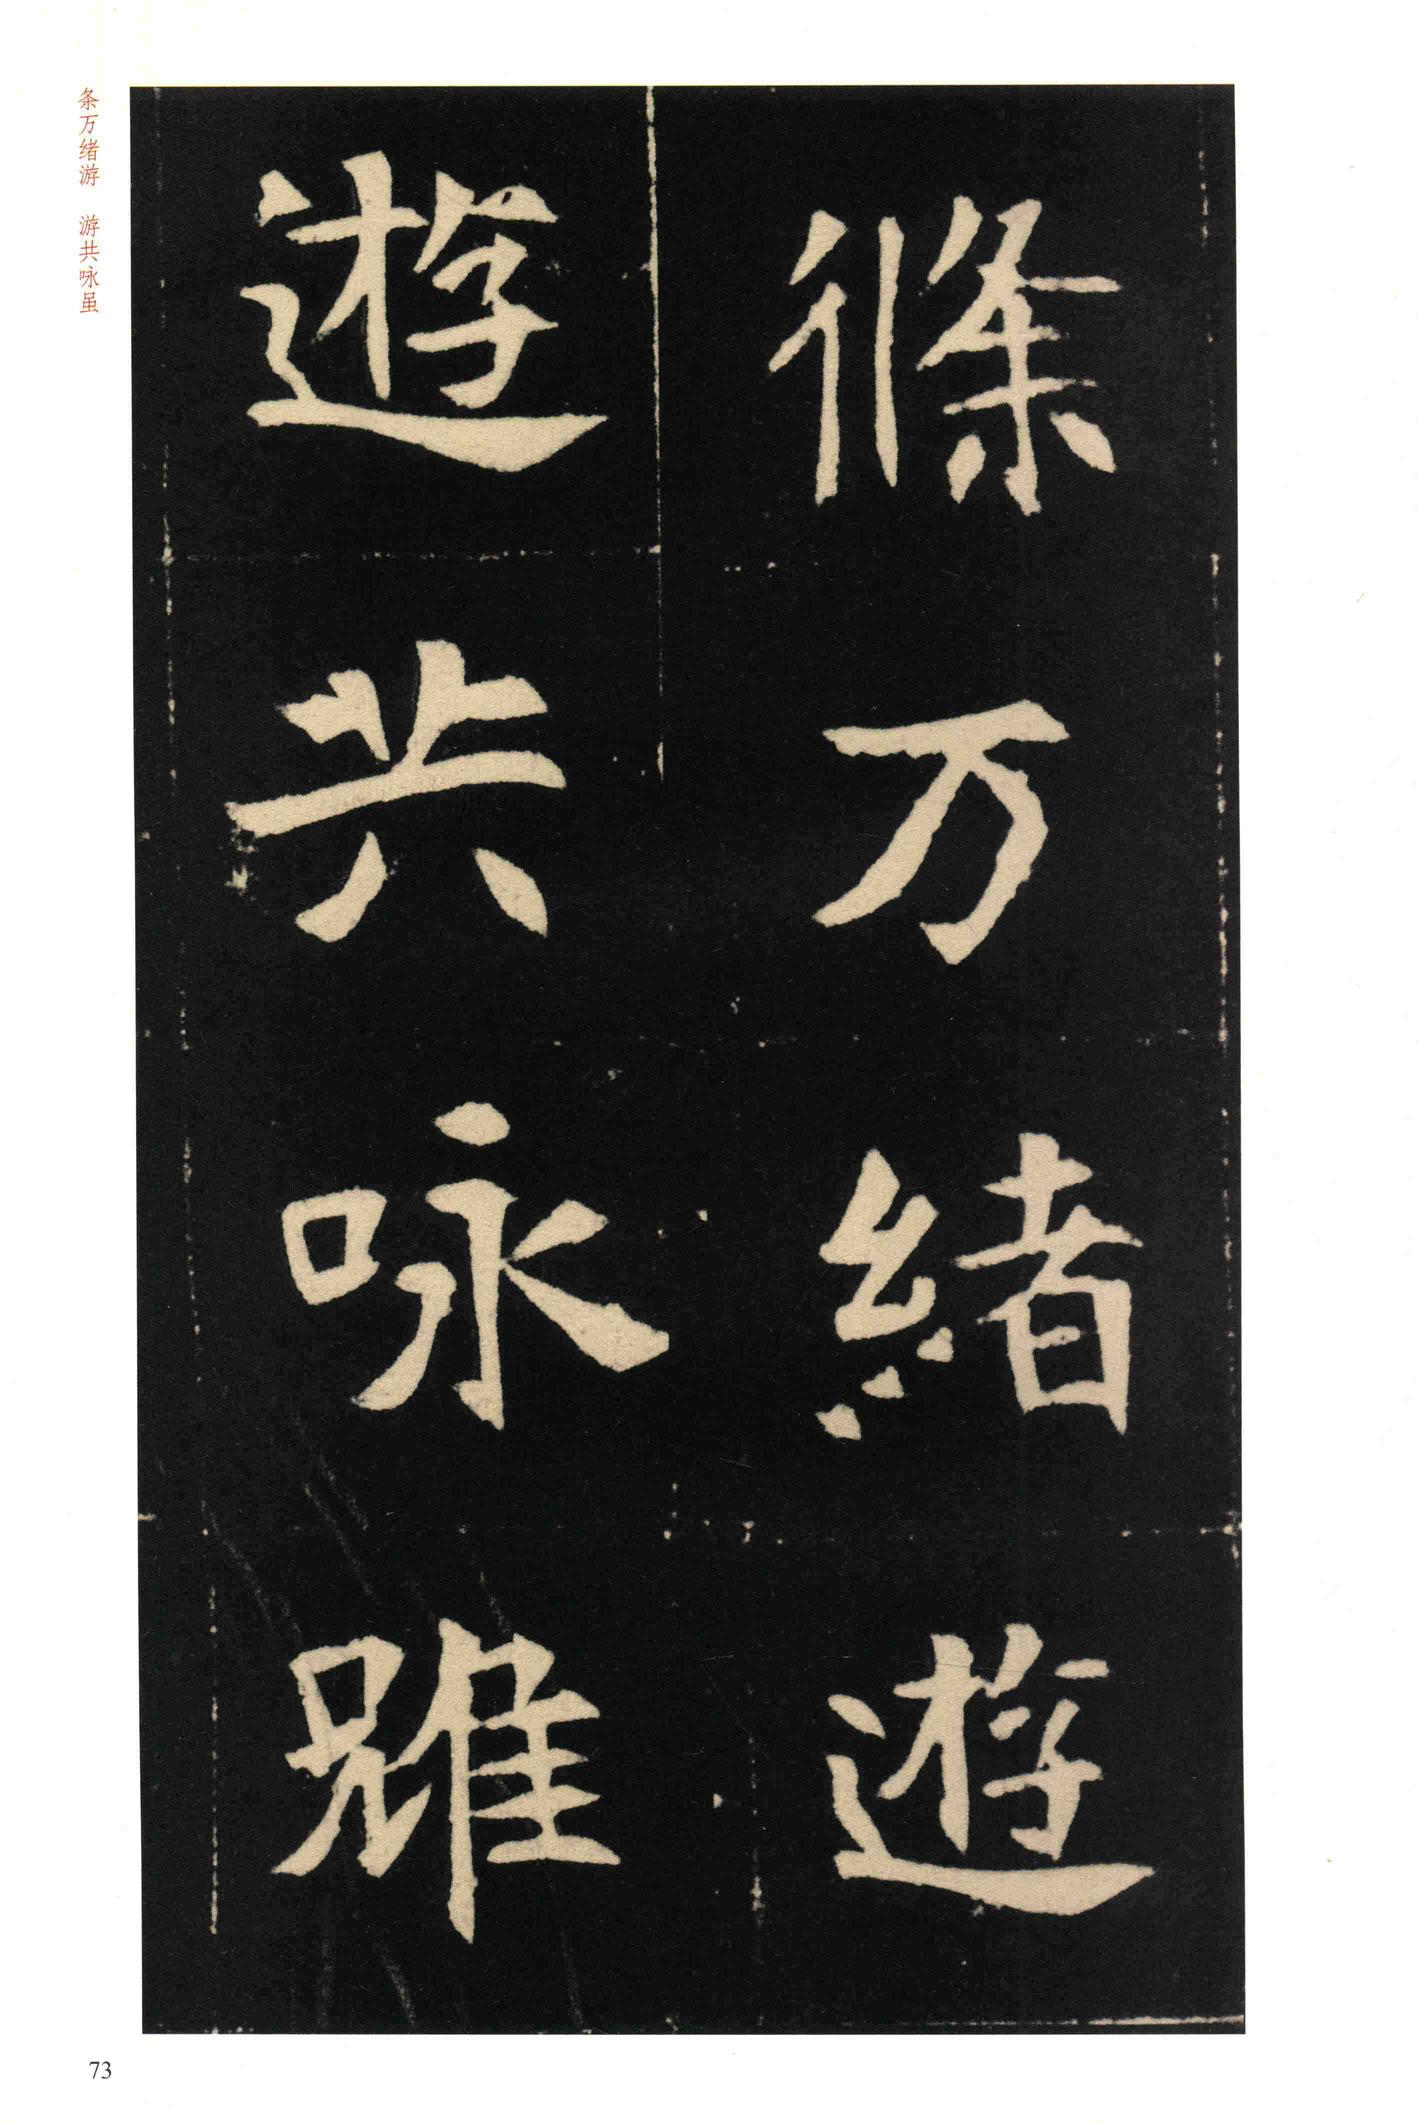 條万緒遊
遊共咏雖
条万绪游　游共咏虽
73